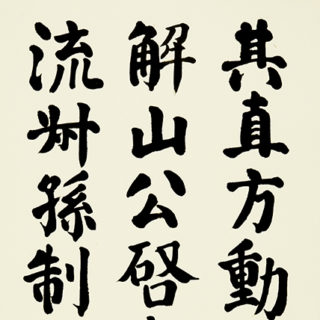 其真方動
解山公啓
流艸孫制